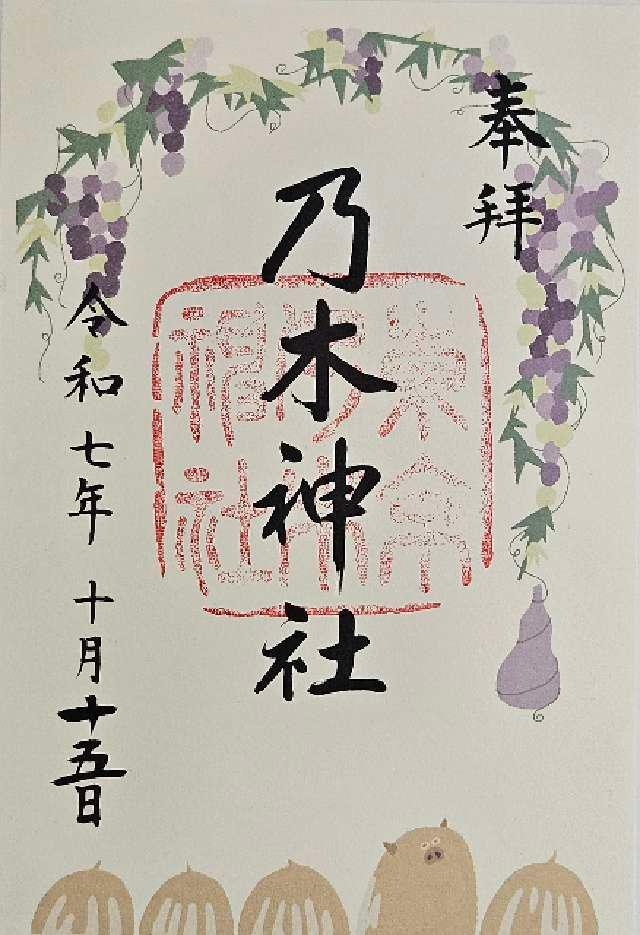 奉拝
乃木神社
令和七年十月十五日
東京
乃木
神社